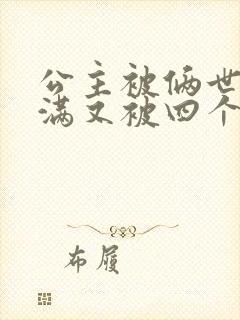 公主被俩世
满又被四个
布履